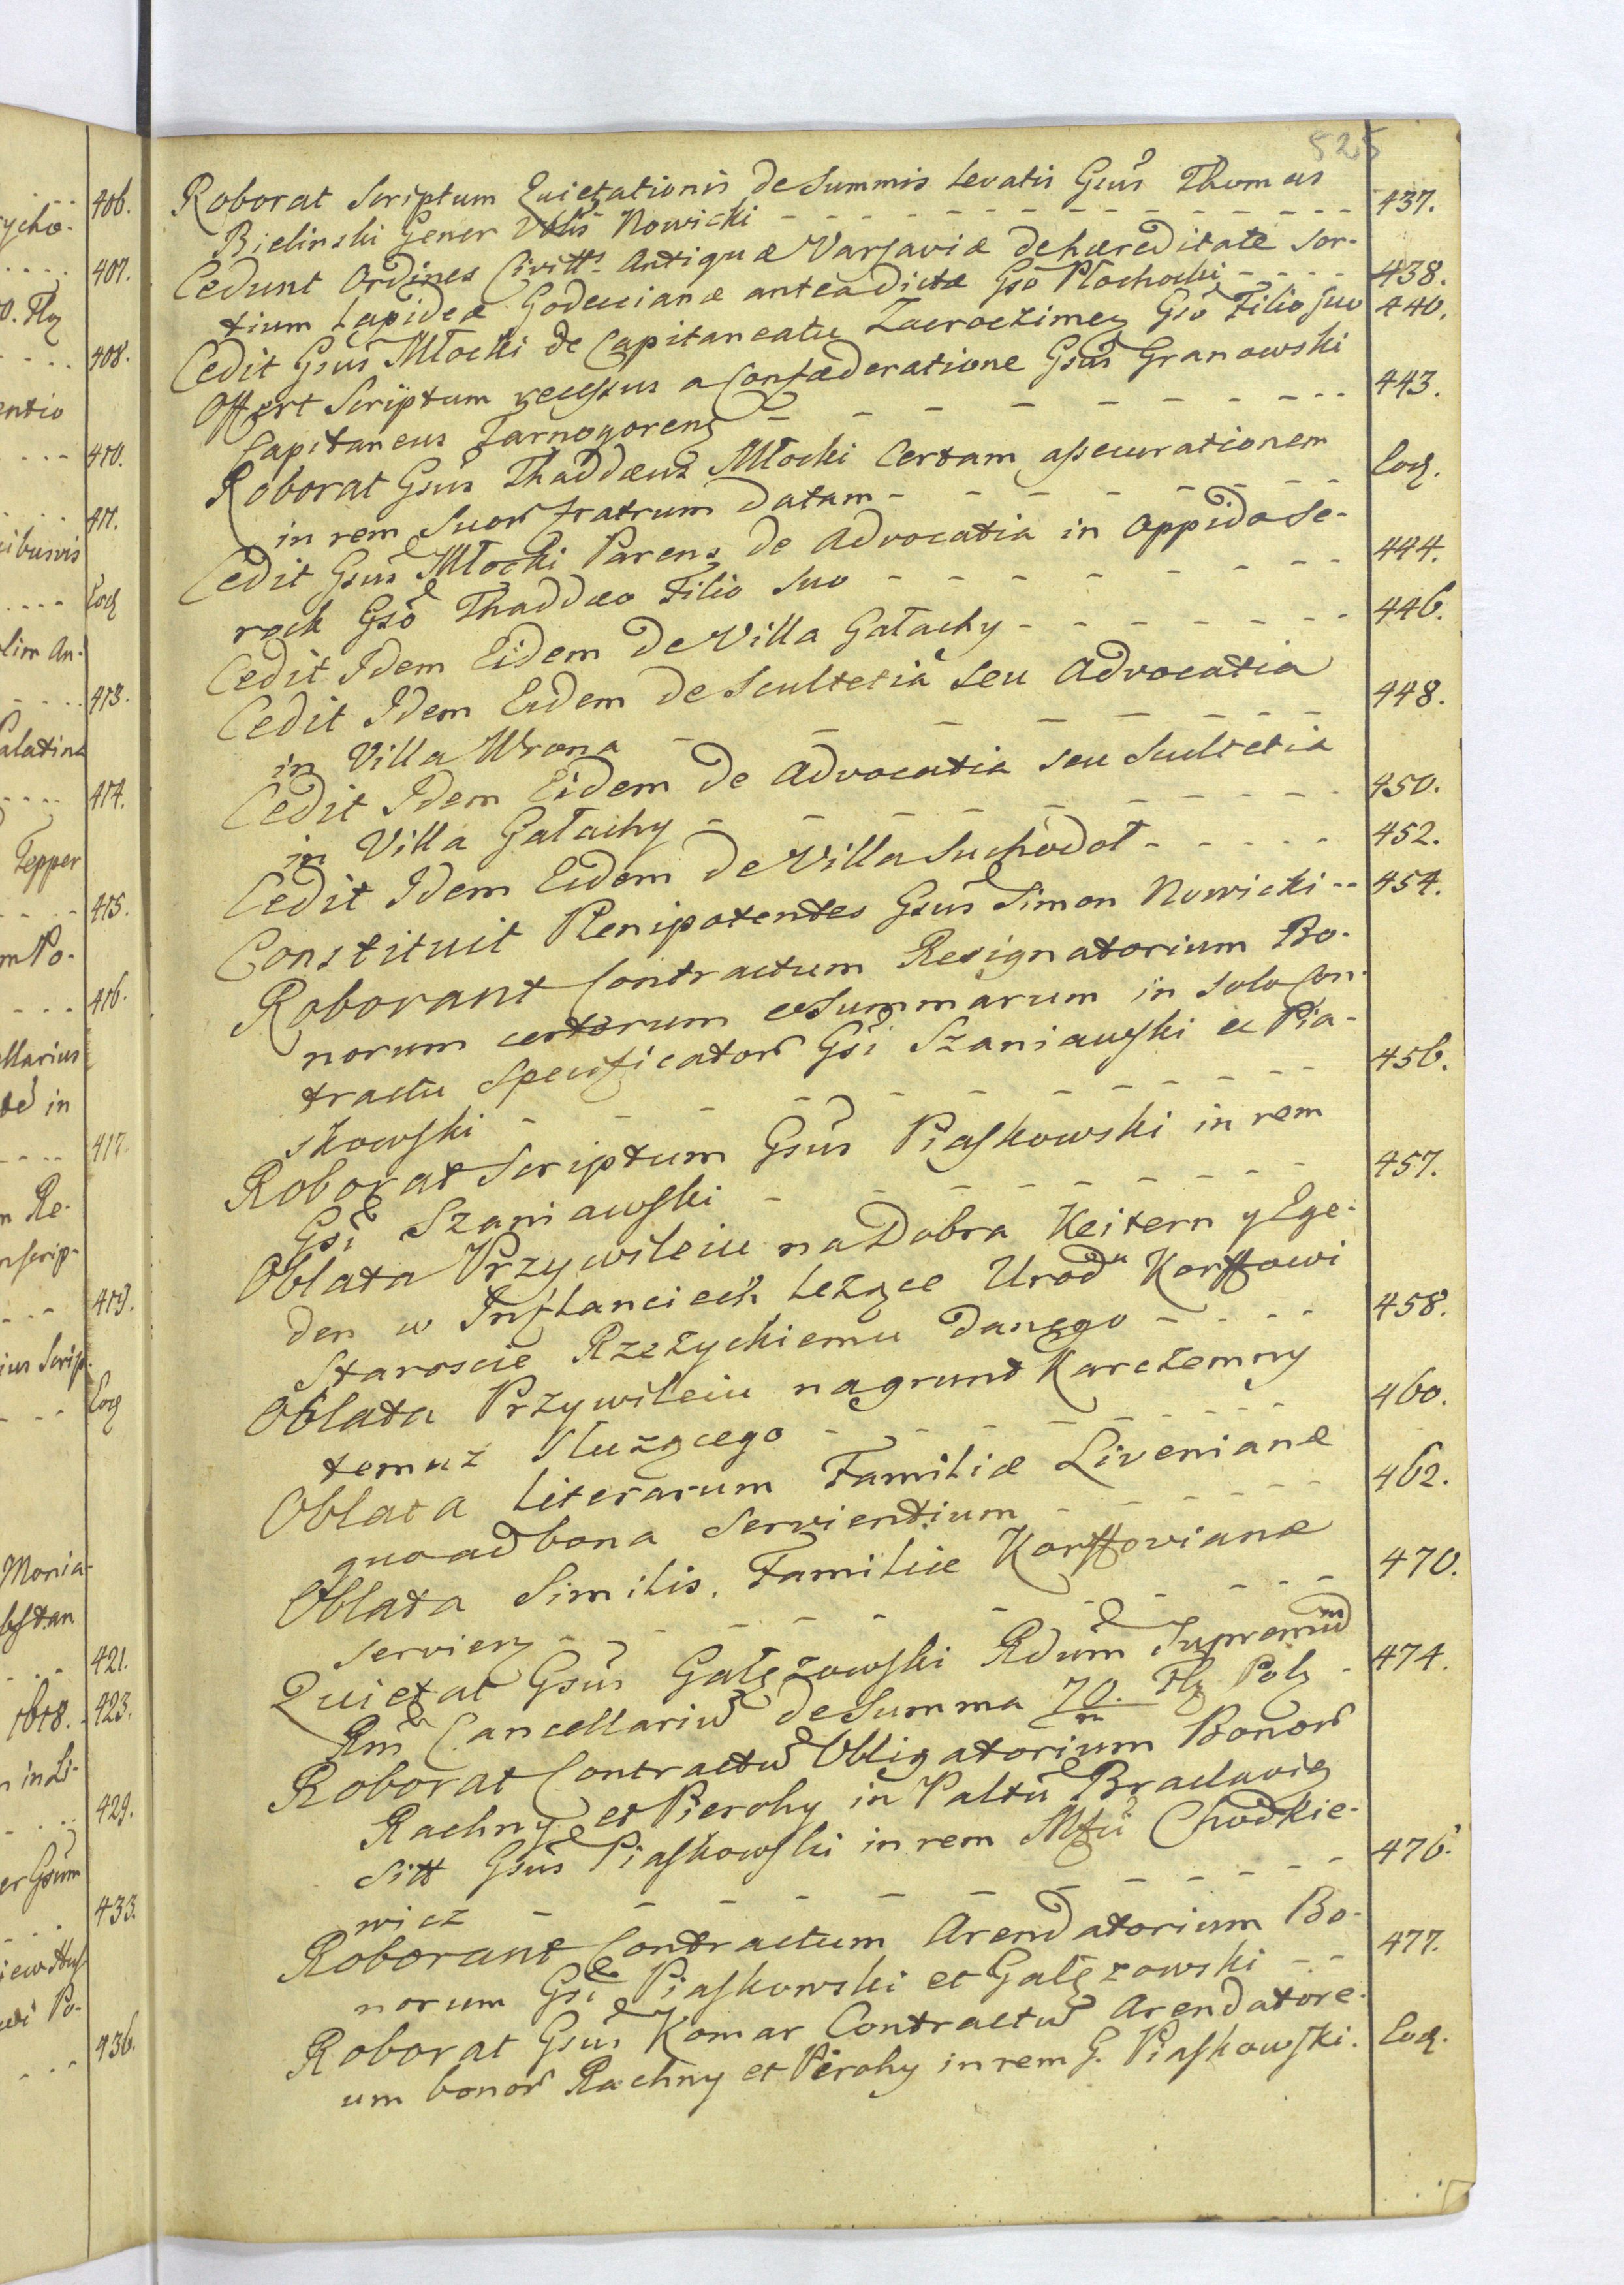 525
Roborat Scriptum Quietationis de Summis levatis Gsus Thomas
Bielinski Gener Nowicki - - - 437.
Cedunt Ordines Civitts Antiquæ Varsaviæ de hæreditate Sor-
tium Lapideæ Godeucianæ antea dictæ Gso Płochocki - - - 438.
Cedit Gsus Młocki de Capitaneatu Zacroczimeń Gso Filio suo 440.
Offert Scriptum recessus a Confæderatione Gsus Granowski
Capitaneus Tarnogoreń - - - 443.
Roborat Gsus Thaddæus Młocki Certam assecurationem
in rem Suor Fratrum datam - - - Eod.
Cedit Gsus Młocki Parens de Advocatia in Oppido Se-
rock Gso Thaddæo Filio Suo - - - 444.
Cedit Idem Eidem de Villa Gałachy - - - 446.
Cedit Idem Eidem de Scultetia seu Advocatia
in Villa Wrona - - - 448.
Cedit Idem Eidem de Advocatia seu Scultetia
in Villa Gałachy - - - 450.
Cedit Idem Eidem de Villa Suchodoł - - - 452.
Constituit Plenipotentes Gsus Simon Nowicki - - 454.
Roborant Contractum Resignatorium Bo-
norum certorum et Summarum in Solo Con-
tractu Specificator Gsi Szaniawski et Pia-
skowski - - - 456.
Roborat Scriptum Gsus Piaskowski in rem
Gsi Szaniawski - - - 457.
Oblata Przywileiu na Dobra Keitern y Ege-
den w Inflanciech leżące Urod Korffowi
Staroscie Rzeżyckiemu danego - - - 458.
Oblata Przywileiu na grunt Karczemny
temuż Służącego - - - 460.
Oblata Literarum Familiæ Livenianæ
quoad bona Servientium - - - 462.
Oblata Similis. Familiæ Korffovianæ
servień - - - 470.
Quietat Gsus Gałęzowski Rdum Supremum
Rni Cancellariu de Summa 70. m Flg Polg - 474.
Roborat Contractu Obligatorium Bonor
Rachny et Pierohy in Paltu Braclavig
Sitt Gsus Piaskowski in rem Mfci Chodkie-
wicz - - - 476.
Roborant Contractum Arendatorium Bo-
norum Gsi Piaskowski et Gałęzowski - - 477.
Roborat Gsus Komar Contractu Arendatore-
um bonor Rachny et Pierohy in rem G. Piaskowski. Eod.
406.
407.
408.
410.
411.
Eod
413.
414.
Tepper
415.
416.
417.
419.
Eod
421.
423.
429.
433.
436.